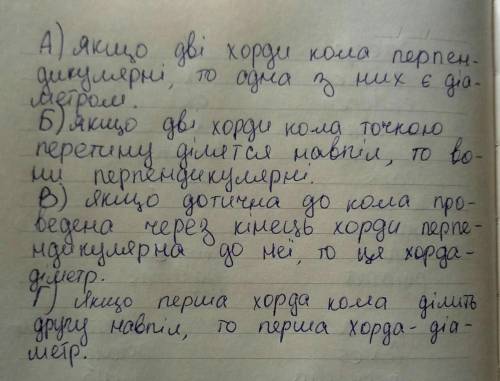 А) якщо дві хорди кола перпен-
дикулярні, то одна з них є діа-
метром.
Б) якщо дві хорди кола точкою
перетину ділятся навпіл, то во-
ни перпендикулярні.
В) якщо дотична до кола про-
ведена через кінець хорди перпе-
ндикулярна до неї, то ця хорда-
діметр.
Г) якщо перша хорда кола ділить
другу навпіл, то перша хорда- діа-
метр.